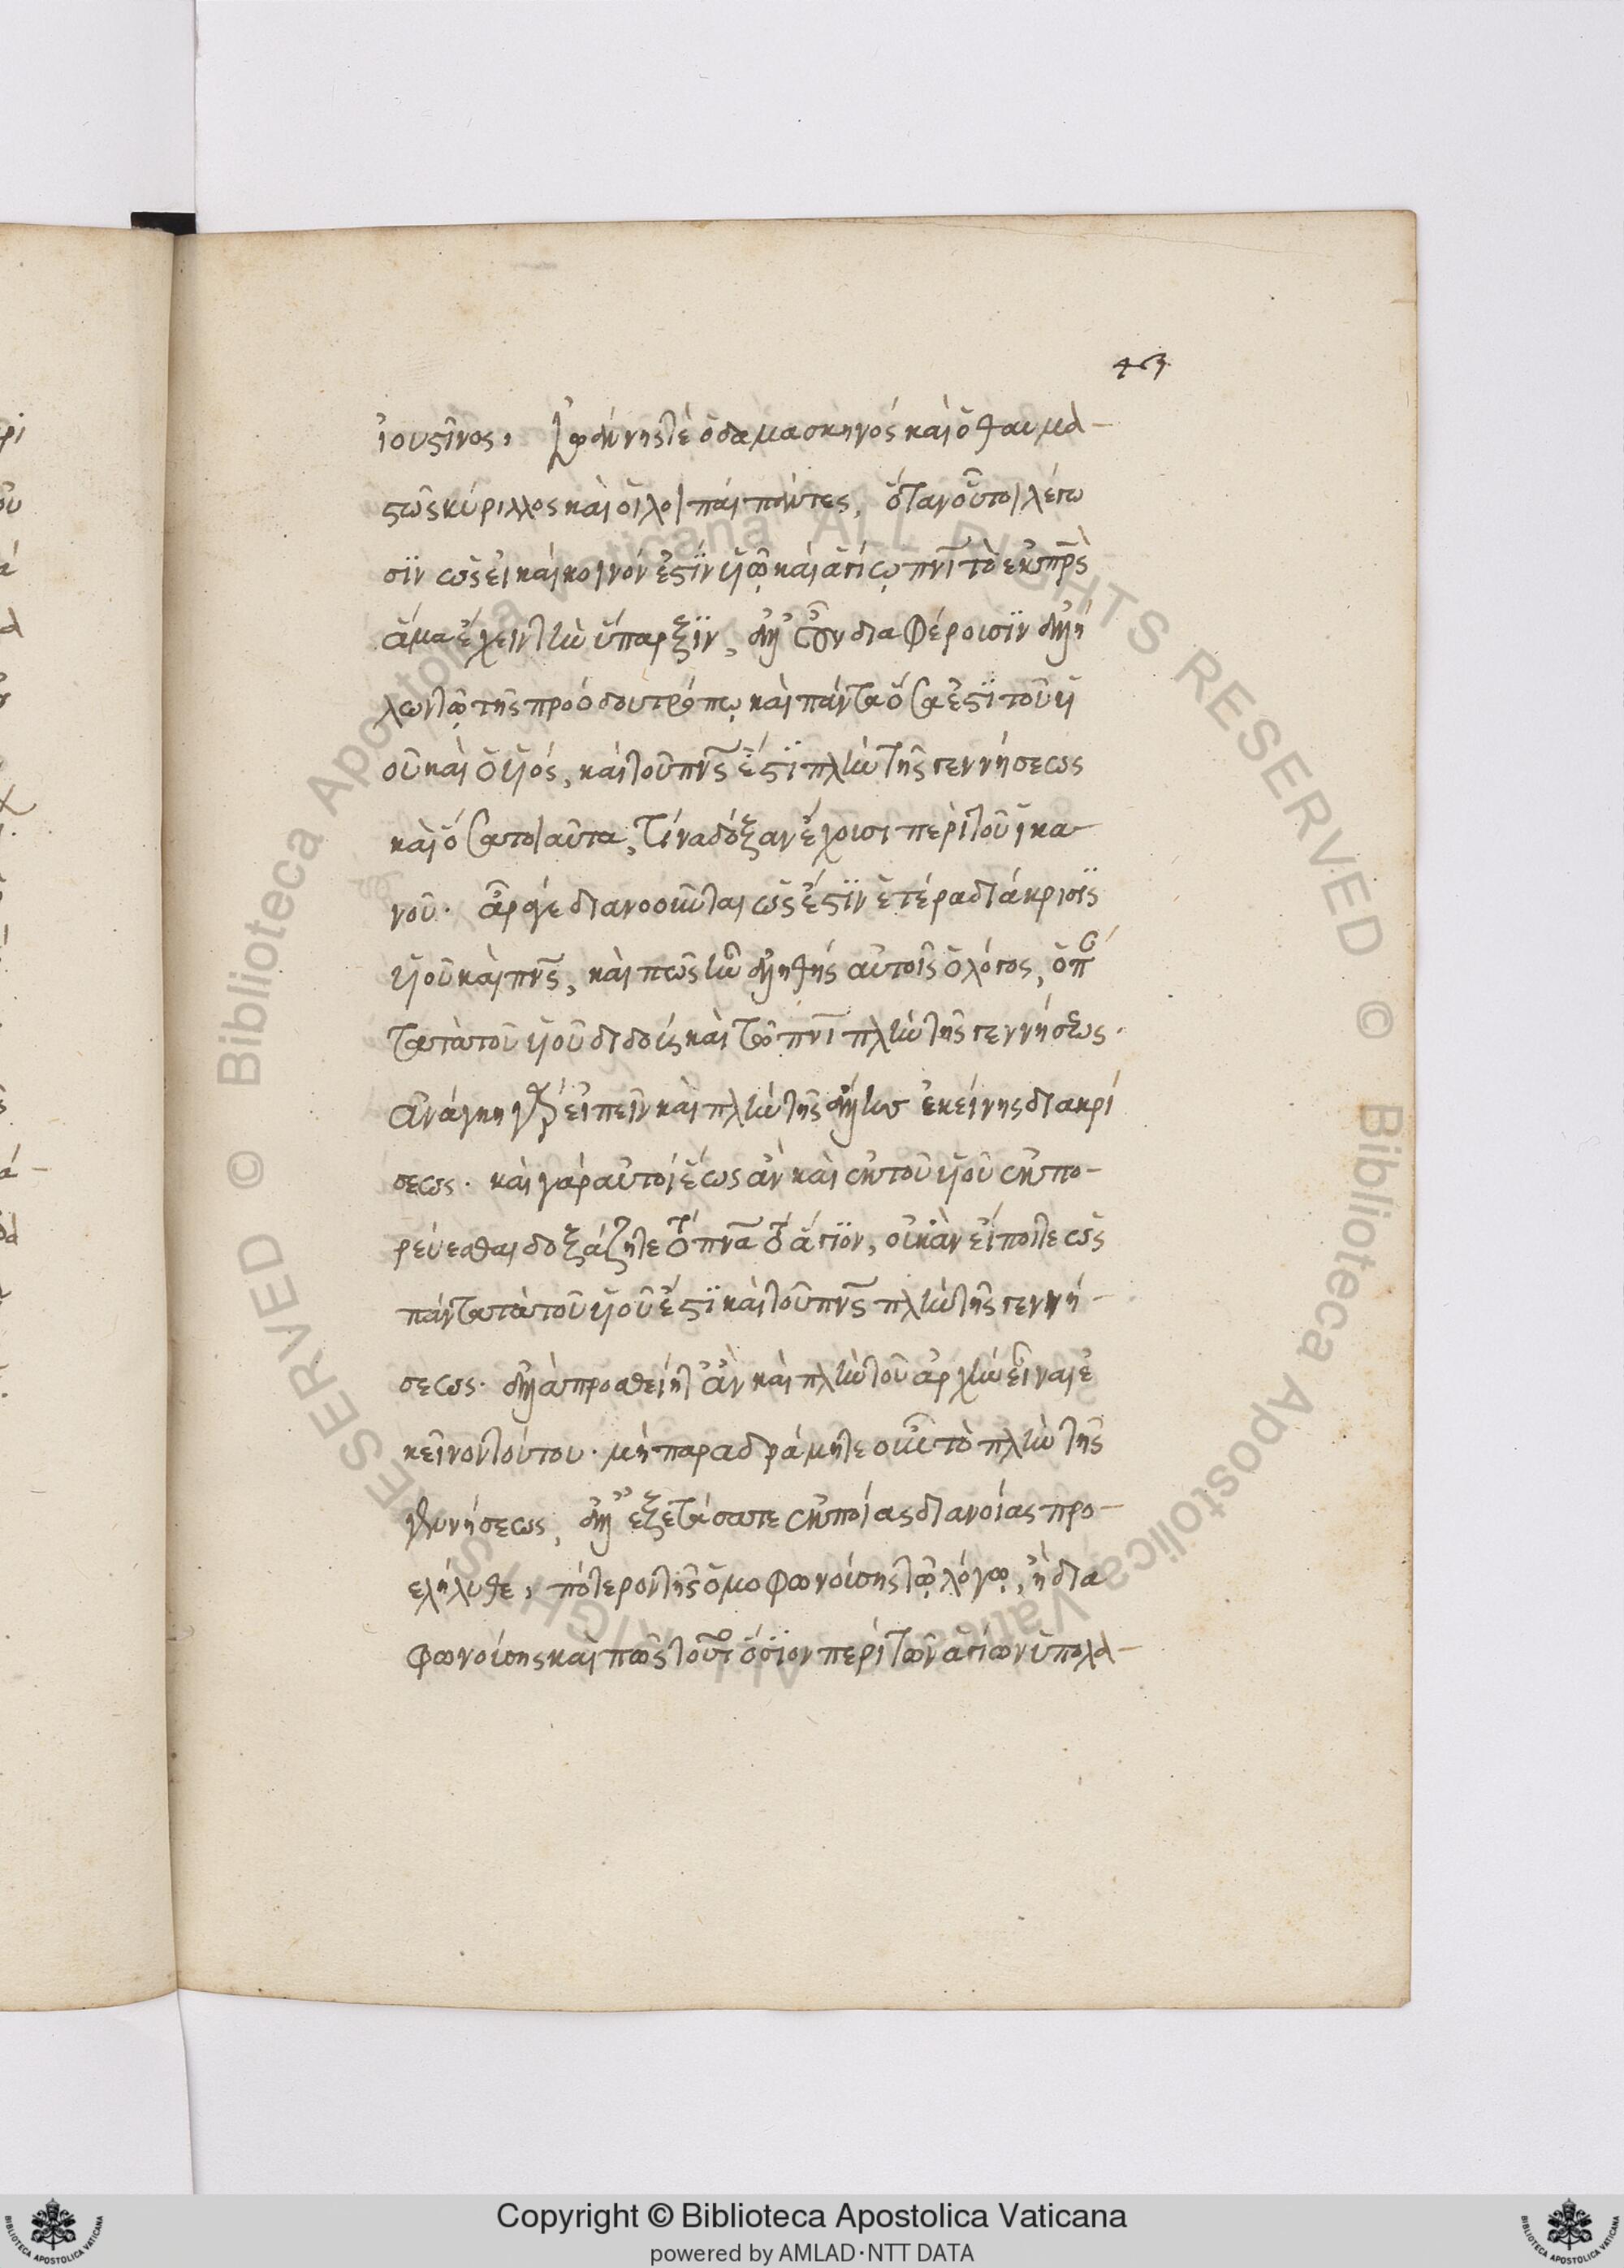 463
ἰουστῖνος, ἰωάννης τὲ ὁ δαμασκηνός καὶ ὁ θαυμα-
στὸς κύριλλος καὶ οἱ λοιποὶ πάντες, ὅταν οὗτοι λέγω
σιν ὡς εἰ καὶ κοινόν ἐστιν υἱῷ καὶ ἁγίῳ πνι τὸ ἐκ πρς
ἅμα ἔχειν τὴν ὕπαρξιν, ἀλλ' οὖν διαφέρουσιν ἀλλή
λων τῷ τῆς προόδου τρόπῳ καὶ πάντα ὅσα ἐστὶ τοῦ υἱ
οῦ καὶ ὁ υἱός, καὶ τοῦ πνς ἐστὶ πλὴν τῆς γεννήσεως
καὶ ὅσα τοιαῦτα, τίνα δόξαν ἔχουσι περὶ τοῦ ἱκα-
νοῦ. ἆρά γε διανοοῦνται ὡς ἔστιν ἑτέρα διάκρισις
υἱοῦ καὶ πνς, καὶ πῶς ἦν ἀληθής αὐτοῖς ὁ λόγος, ὁ π
τα τὰ τοῦ υἱοῦ διδούς καὶ τῷ πνι πλὴν τῆς γεννήσεως.
ἀνάγκη γὰρ εἰπεῖν καὶ πλὴν τῆς ἄλλης ἐκείνης διακρί
σεως. καὶ γὰρ αὐτοὶ ἕως ἂν καὶ ἐκ τοῦ υἱοῦ ἐκπο-
ρεύεσθαι δοξάζητε τὸ πνα τὸ ἅγιον, οὐκ ἂν εἴποιτε ὡς
πάντα τὰ τοῦ υἱοῦ ἐστὶ καὶ τοῦ πνς πλὴν τῆς γεννή-
σεως. ἀλλὰ προσθείητ' ἂν καὶ πλὴν τοῦ ἀρχὴν εἶναι ἐ
κεῖνον τούτου. μὴ παραδράμητε οὖν τὸ πλὴν τῆς
γεννήσεως, ἀλλ' ἐξετάσατε ἐκ ποίας διανοίας προ-
ελήλυθε, πότερον τῆς ὁμοφωνούσης τῷ λόγῳ, ἢ δια
φωνούσης καὶ πῶς τοῦτο ὅσιον περὶ τῶν ἁγίων ὑπολα-
Copyright © Biblioteca Apostolica Vaticana
powered by AMLAD·NTT DATA